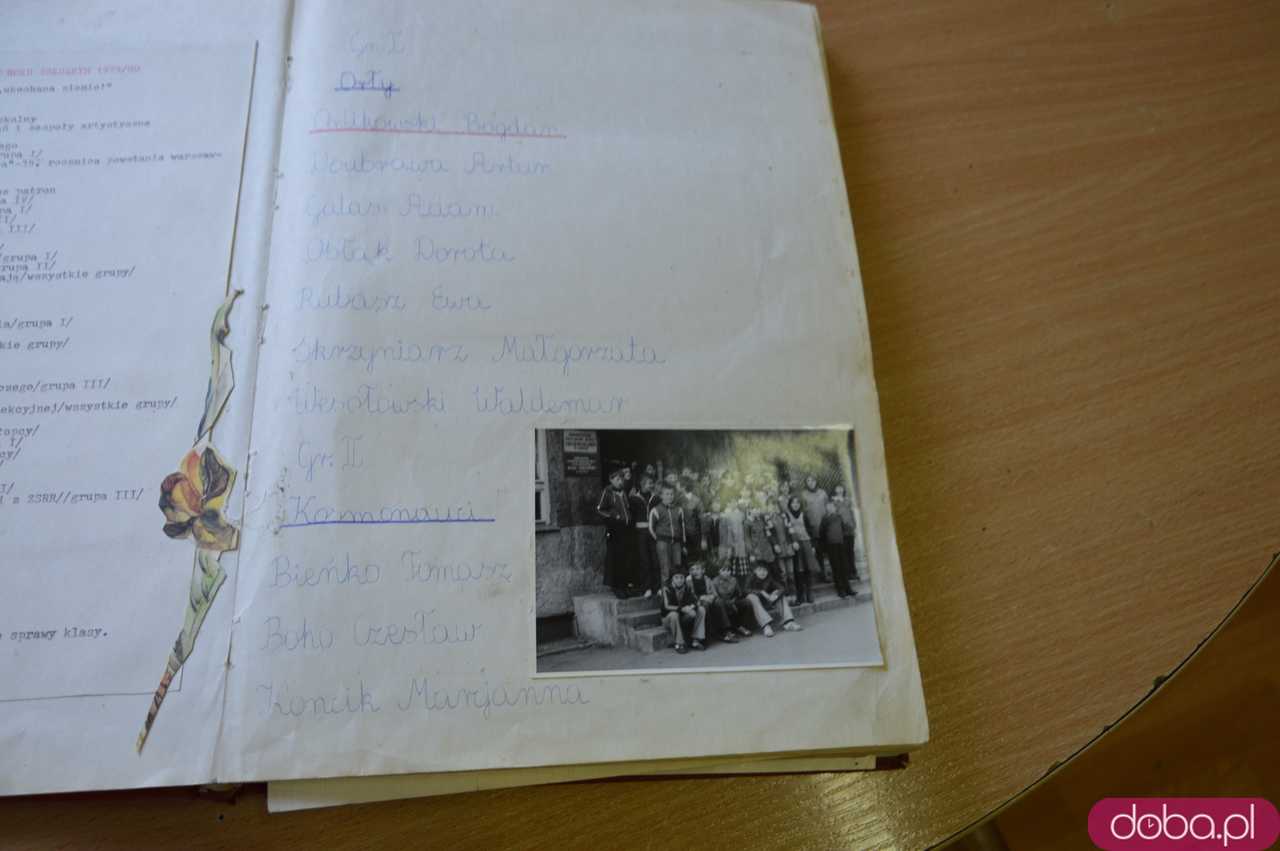 ROKU SZKOLNYM 1979/80
ukochana ziemio!"
i zespoły artystyczne
rupa I/
rocznica powstania warszaw-
patron
a IV/
pa I/
II/
III/
/grupa I/
rupa II/
ają/wszystkie grupy/
ia/grupa I/
kie grupy/
czego/grupa III/
ekcyjnej/wszystkie grupy/
I/
i z ZSRR//grupa III/
sprawy klasy.
Gr. I
Orły
Bogdan
Doubrawa Artur
Galas Adam
Obłąk Dorota
Rubasz Ewa
Skrzyniarz Małgorzata
Wesołowski Waldemar
Gr. II
Kosmonauci
Bieńko Tomasz
Boho Czesław
Koncik Marjanna
doba.pl